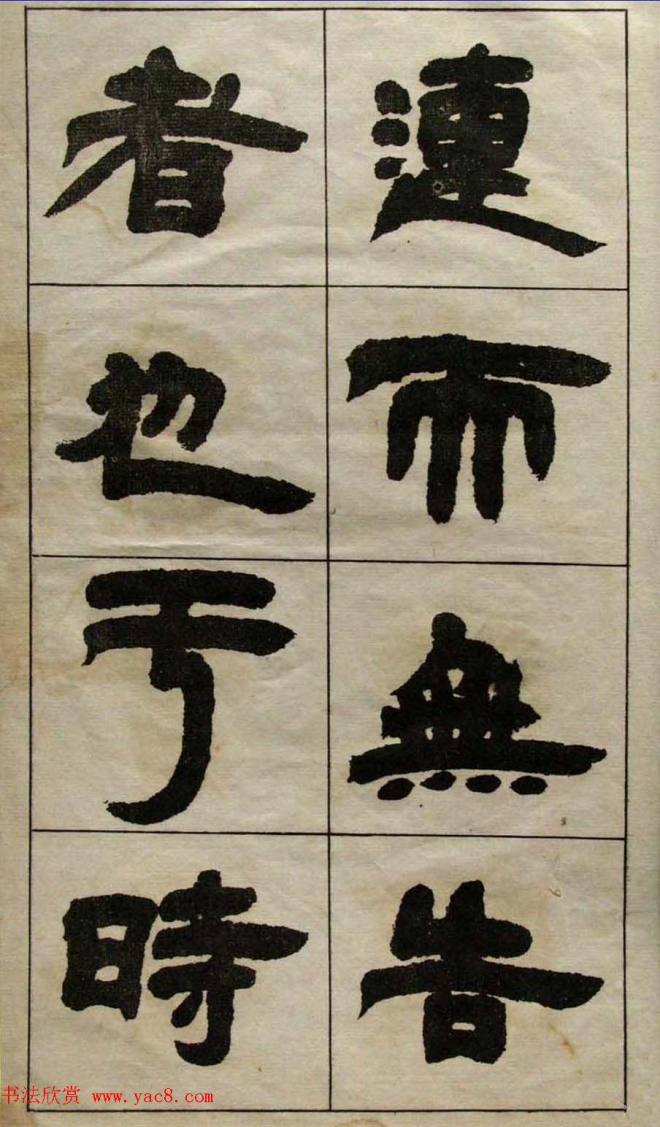 連而無告
者也于時
书法欣赏 www.yac8.com